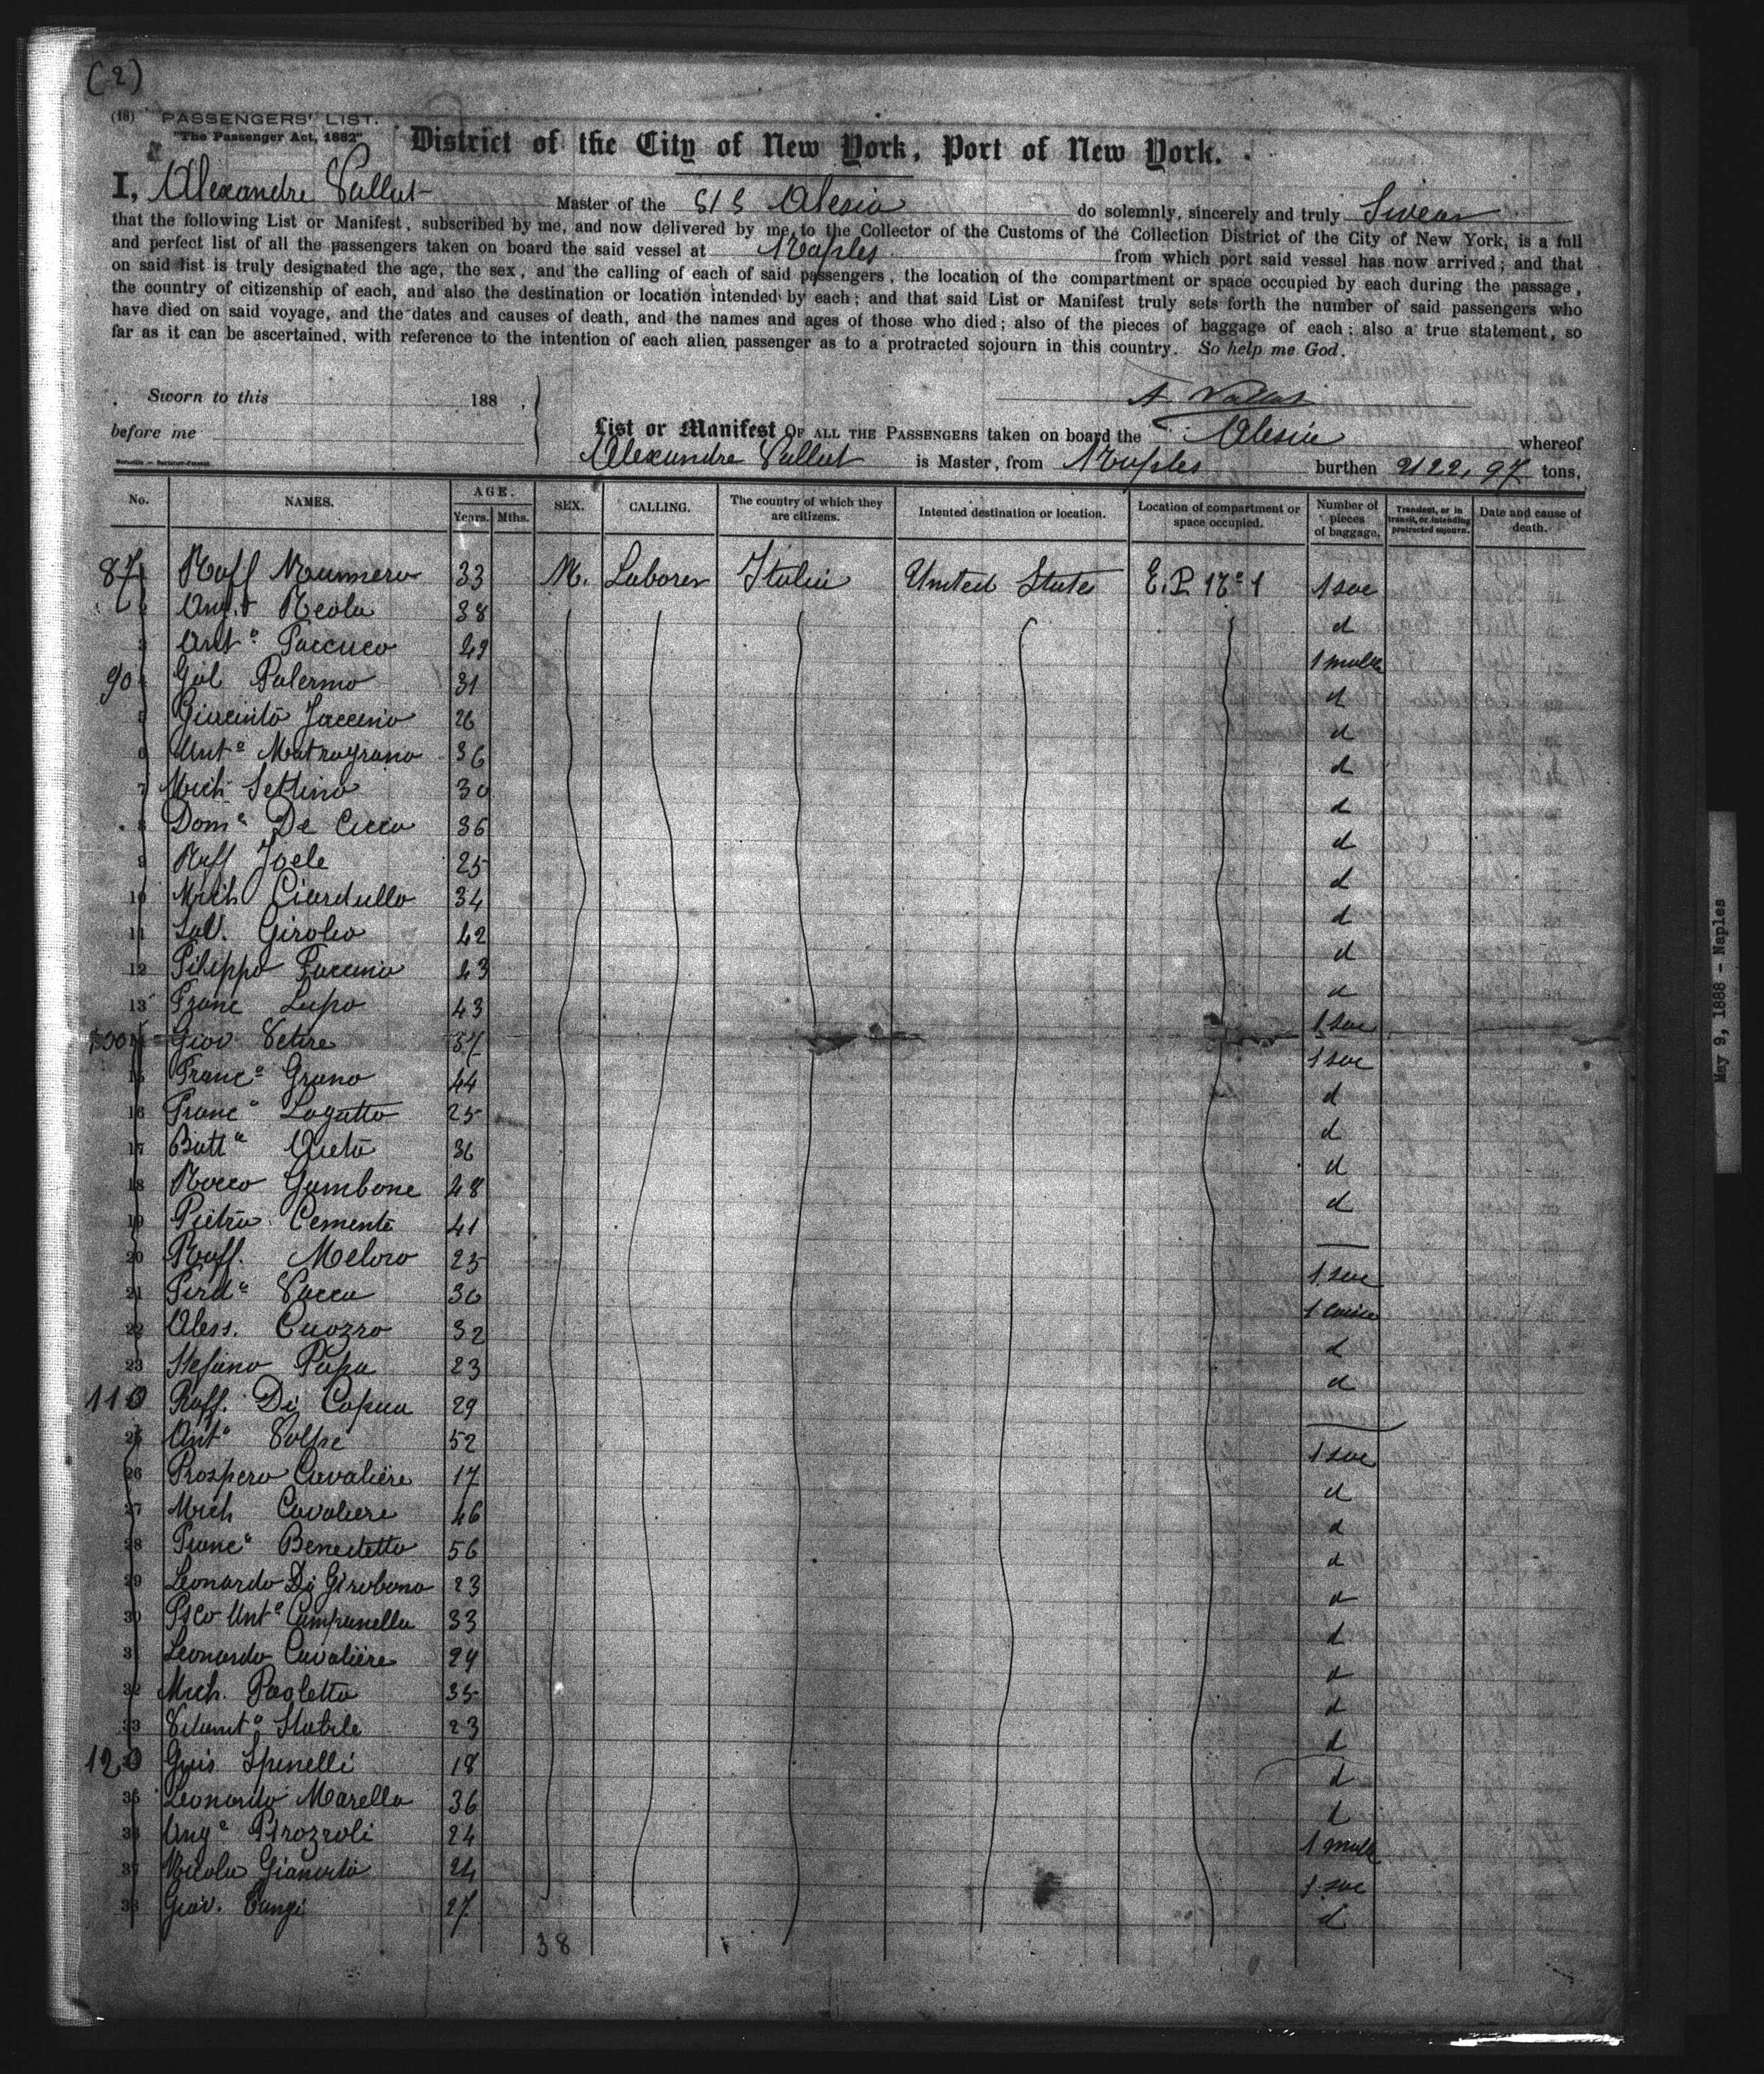 (2)
(18) PASSENGERS' LIST.
"The Passenger Act, 1882"
District of the City of New York, Port of New York.
I, Alexandre Vallat Master of the S/S Alesia do solemnly, sincerely and truly Swear
that the following List or Manifest, subscribed by me, and now delivered by me, to the Collector of the Customs of the Collection District of the City of New York, is a full
and perfect list of all the passengers taken on board the said vessel at Naples from which port said vessel has now arrived; and that
on said list is truly designated the age, the sex, and the calling of each of said passengers, the location of the compartment or space occupied by each during the passage,
the country of citizenship of each, and also the destination or location intended by each; and that said List or Manifest truly sets forth the number of said passengers who
have died on said voyage, and the dates and causes of death, and the names and ages of those who died; also of the pieces of baggage of each; also a true statement, so
far as it can be ascertained, with reference to the intention of each alien passenger as to a protracted sojourn in this country. So help me God.
A. Vallat
Sworn to this 188
before me
List or Manifest OF ALL THE PASSENGERS taken on board the Alesia whereof
Alexandre Vallat is Master, from Naples burthen 2122,97 tons.
No. NAMES. AGE. Years. Mths. SEX. CALLING. The country of which they are citizens. Intented destination or location. Location of compartment or space occupied. Number of pieces of baggage. Transient, or in transit, or intending protracted sojourn. Date and cause of death.
87 Raff 33 M. Laborer Italia United State E.P. Nº 1 1 sac
2 Reola 38 d
3 Antº Paccuco 49 1 malle
90 Palermo 31 d
5 Giacinto Jaccino 26 d
6 Antº Matragrano 36 d
7 Mich Settino 30 d
8 Domº De Cicco 36 d
9 Raff Joele 25 d
10 Mich Ciardullo 34 d
11 Salv. Girolio 42 d
12 Filippo Paccino 43 d
13 Franc Lupo 43 1 sac
100 Giov Vetere 37 1 sac
15 Francº Grano 44 d
16 Francº Logatto 25 d
17 Battª 36 d
18 Rocco Gambone 48 d
19 Pietro Cemente 41 —
20 Raff. Meloro 25 1 sac
21 Ferdº Vacca 30 1 caisse
22 Aless. Cuozzo 32 d
23 Stefano Papa 23 d
110 Raff. Di Capua 29 —
25 Antº Volpe 52 1 sac
26 Prospero Cavaliere 17 d
27 Mich Cavaliere 46 d
28 Francº Benedetto 56 d
29 Leonardo Di Girobono 23 d
30 Fsco Antº Campanella 33 d
31 Leonardo Cavaliere 29 d
32 Mich. Paoletta 35 d
33 Stabile 23 d
120 Gius Spinelli 18 d
35 Leonardo Marella 36 d
36 Angº Pirozzoli 24 1 malle
37 Nicola 24 1 sac
38 Giov. Cangi 27 d
38
May 9, 1888 - Naples